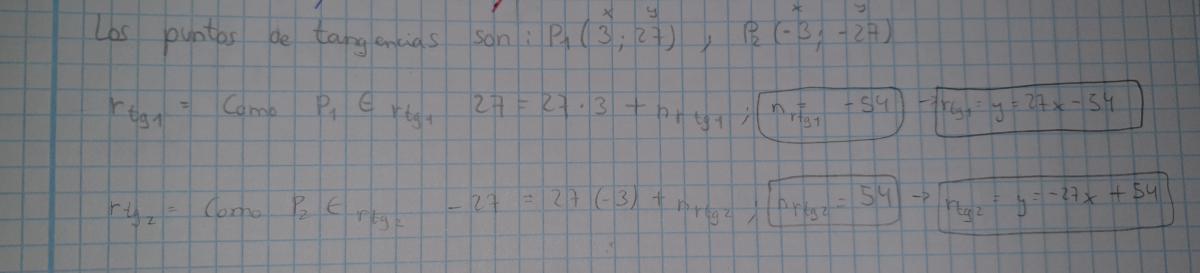 x y x y
Los puntos de tangencias son: P₁ (3; 27), P₂ (-3; -27)
r_tg₁ = Como P₁ ∈ r_tg₁ 27 = 27 · 3 + n_r_tg₁ ; n_r_tg₁ = -54 → r_tg₁ = y = 27x - 54
r_tg₂ = Como P₂ ∈ r_tg₂ -27 = 27 (-3) + n_r_tg₂ ; n_r_tg₂ = 54 → r_tg₂ = y = -27x + 54